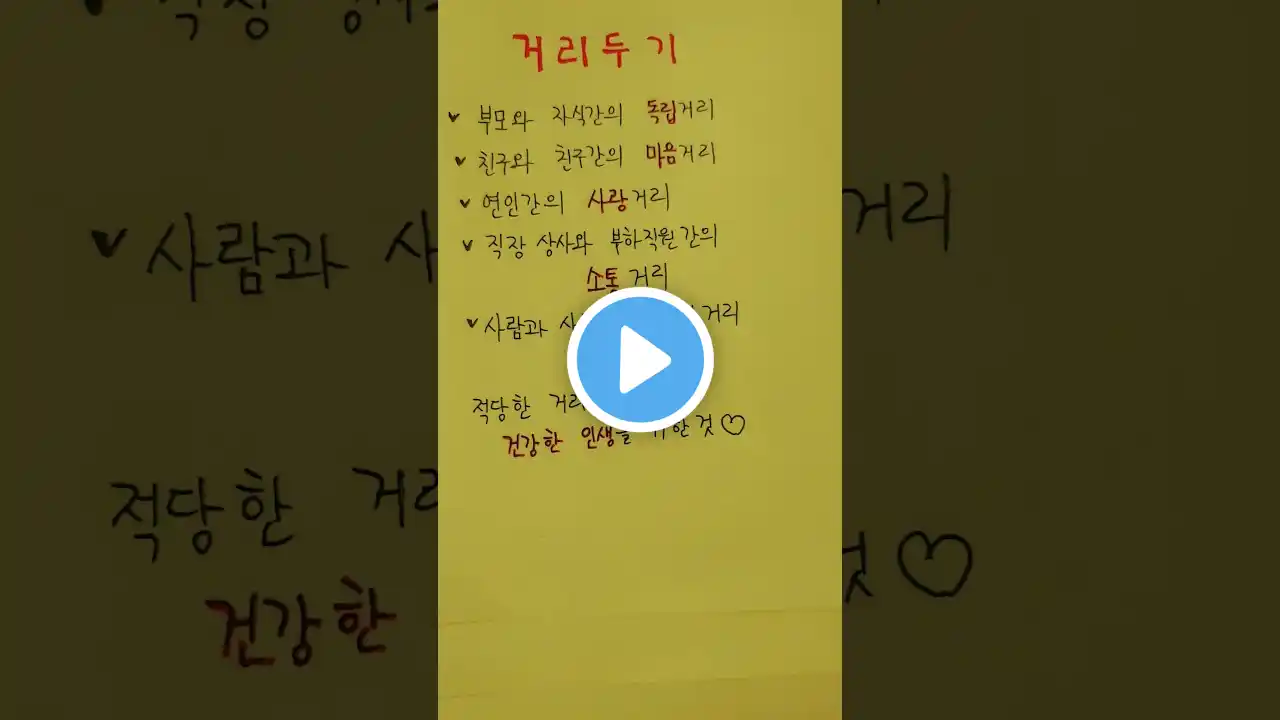 거리두기
✓ 부모와 자식간의 독립거리
✓ 친구와 친구간의 마음거리
✓ 연인간의 사랑거리
✓ 직장 상사와 부하직원간의
소통거리
✓ 사람과 거리
적당한
건강한 인생을 위한 것♡